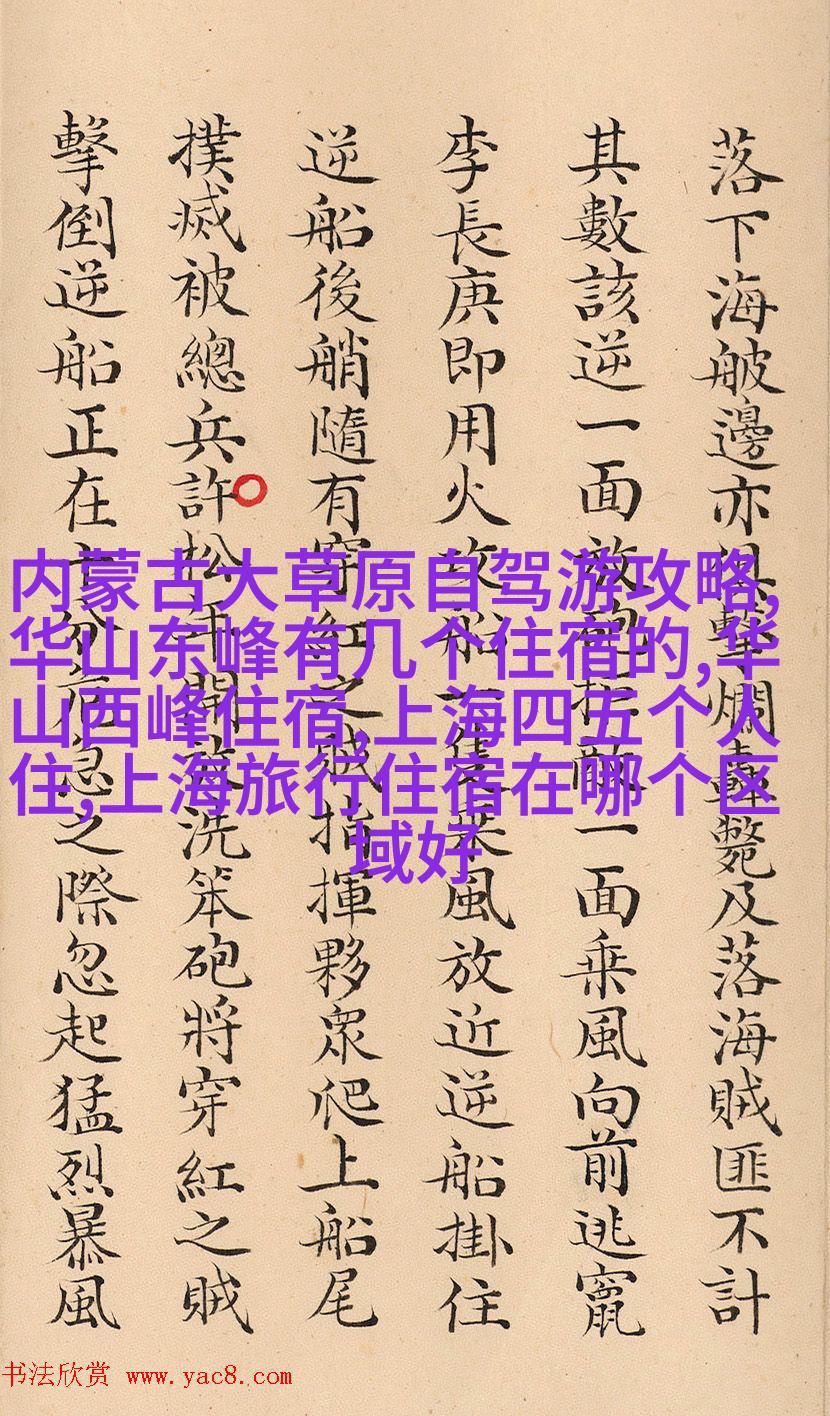 落下海舷邊亦俱擊爛轟斃及落海賊匪不計
其數該逆一面放砲拒敵一面乗風向前逃竄
李長庚即用火攻船一隻乗風放近逆船掛住
逆船後艄隨有穿紅之賊指揮夥眾爬上船尾
撲滅被總兵許松年開放洗笨砲將穿紅之賊
擊倒逆船正在十分危急之際忽起猛烈暴風
内蒙古大草原自驾游攻略,
华山东峰有几个住宿的,华
山西峰住宿,上海四五个人
住,上海旅行住宿在哪个区
域好
书法欣赏 www.yac8.com